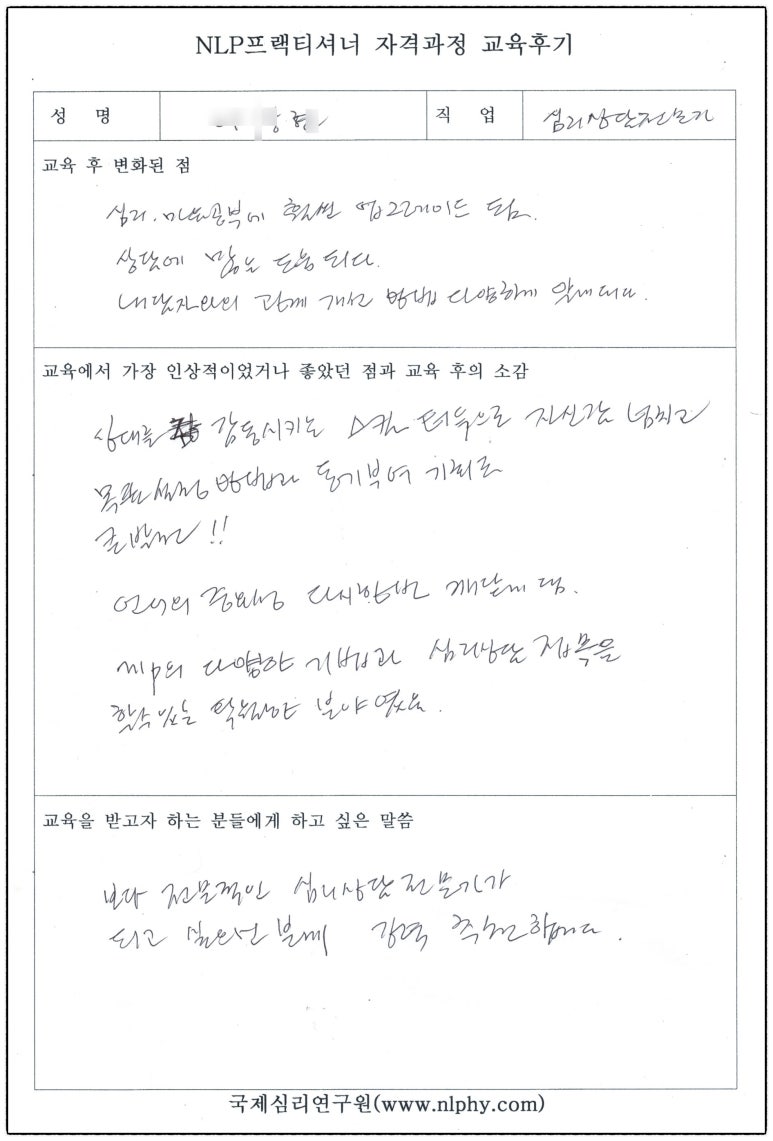 NLP프랙티셔너 자격과정 교육후기
성 명 직 업 심리상담전문가
교육 후 변화된 점
심리.마음공부에 한번 업그레이드 됨.
상담에 많은 도움 되다.
내담자와의 관계 개선 방법 다양하게 알게되다.
교육에서 가장 인상적이었거나 좋았던 점과 교육 후의 소감
상대를 감동시키는 스킬 터득으로 자신감 넘치고
목표설정 방법과 동기부여 기회로
출발선!!
언어의 중요성 다시한번 깨닫게 됨.
nlp의 다양한 기법과 심리상담 접목을
할수있는 탁월한 분야였음.
교육을 받고자 하는 분들에게 하고 싶은 말씀
보다 전문적인 심리상담전문가가
되고 싶으신 분께 강력 추천합니다.
국제심리연구원(www.nlphy.com)